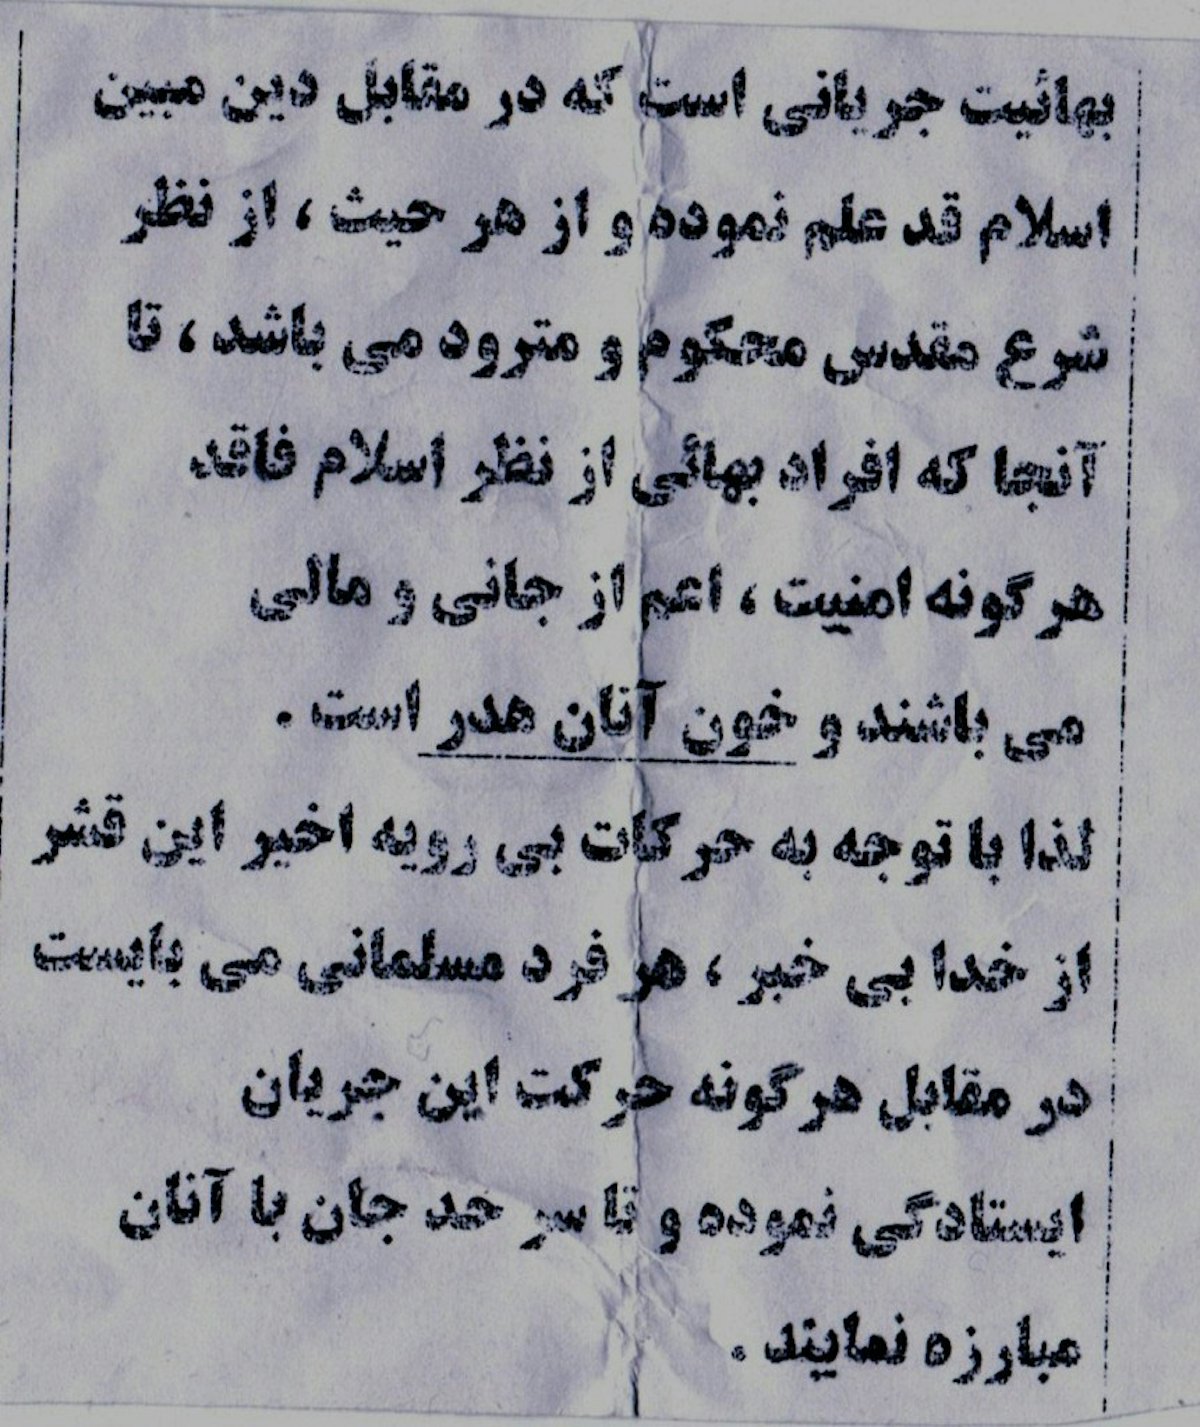 بهائیت جریانی است که در مقابل دین مبین
اسلام قد علم نموده و از هر حیث ، از نظر
شرع مقدس محکوم و مترود می باشد ، تا
آنجا که افراد بهائی از نظر اسلام فاقد
هرگونه امنیت ، اعم از جانی و مالی
می باشند و خون آنان هدر است .
لذا با توجه به حرکات بی رویه اخیر این قشر
از خدا بی خبر ، هر فرد مسلمانی می بایست
در مقابل هرگونه حرکت این جریان
ایستادگی نموده و تا سر حد جان با آنان
مبارزه نمایند .